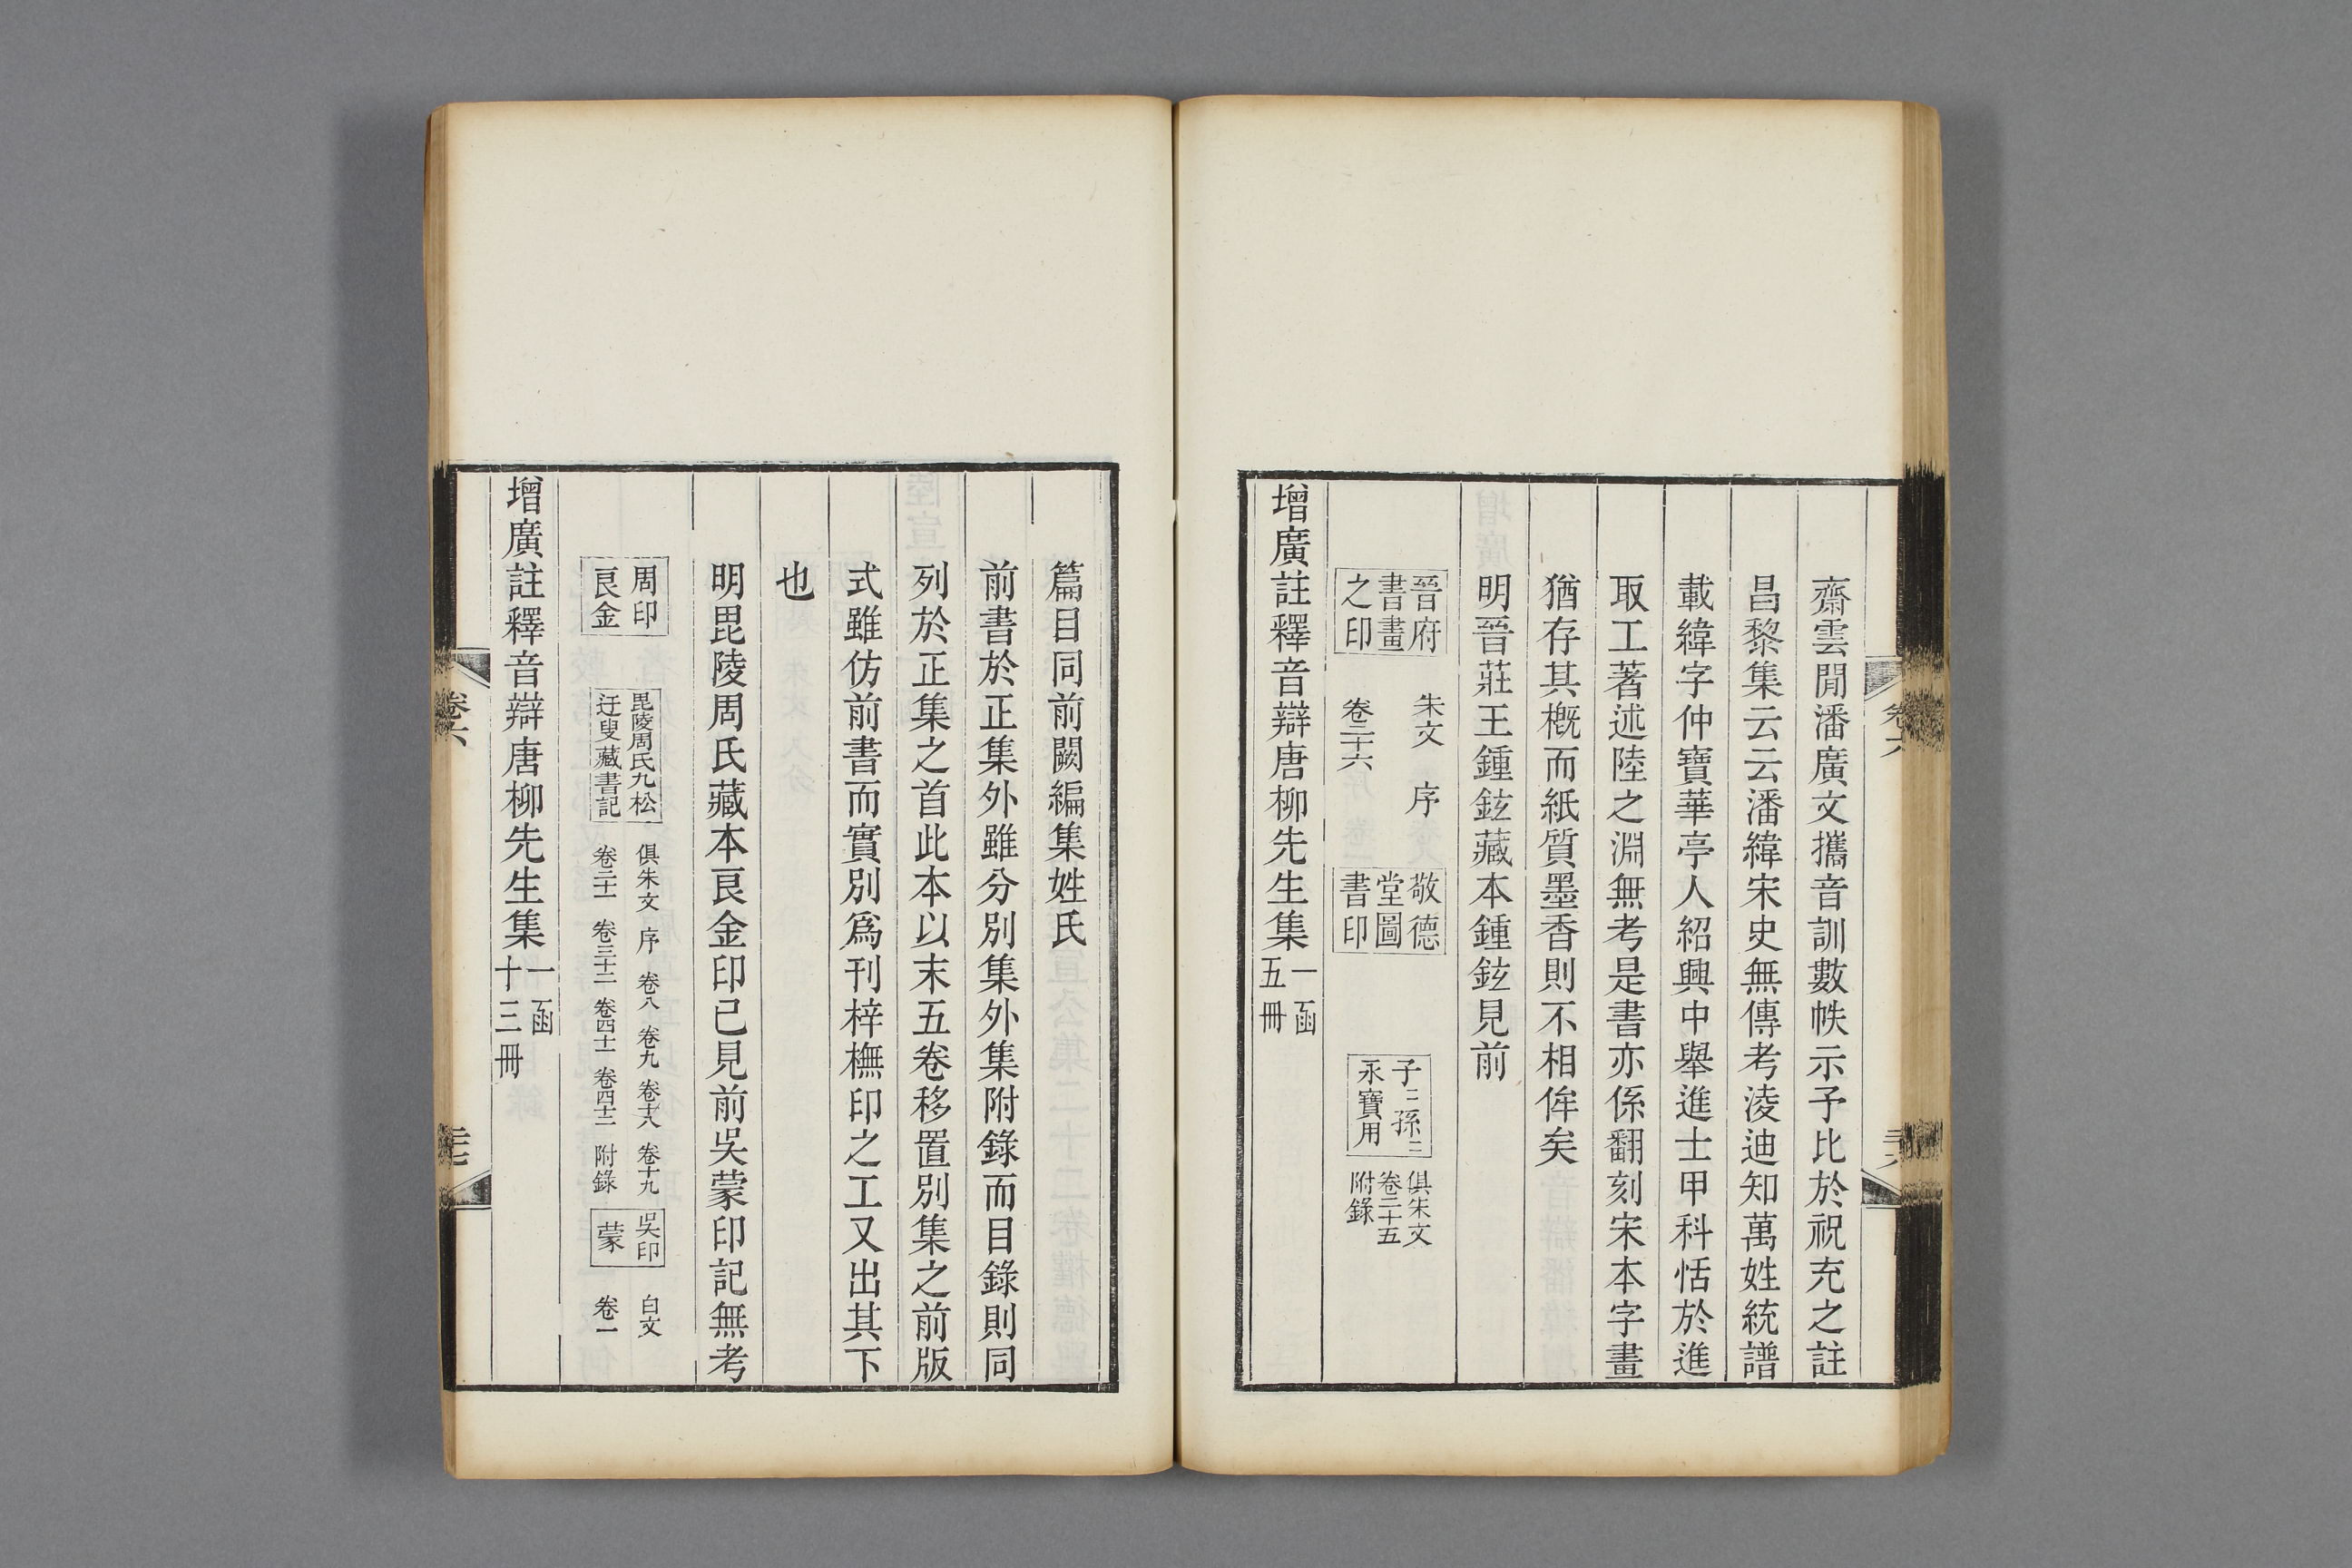 齋雲閒潘廣文攜音訓數帙示予比於祝充之註
昌黎集云云潘緯宋史無傳考淩迪知萬姓統譜
載緯字仲寶華亭人紹興中舉進士甲科恬於進
取工著述陸之淵無考是書亦係翻刻宋本字畫
猶存其槪而紙質墨香則不相侔矣
明晉莊王鍾鉉藏本鍾鉉見前
晉府
書畫
之印
朱文 序
卷三十六
敬德
堂圖
書印
子〻孫〻
永寶用
俱朱文
卷三十五
附錄
增廣註釋音辯唐柳先生集
一函
五冊
篇目同前闕編集姓氏
前書於正集外雖分別集外集附錄而目錄則同
列於正集之首此本以末五卷移置別集之前版
式雖仿前書而實別爲刊梓橅印之工又出其下
也
明毘陵周氏藏本㫐金印已見前吳蒙印記無考
周印
㫐金
毘陵周氏九松
迂叟藏書記
俱朱文 序 卷八 卷九 卷十八 卷十九
卷二十一 卷三十二 卷四十一 卷四十二 附錄
吳印
蒙
白文
卷一
增廣註釋音辯唐柳先生集
一函
十三冊
卷六